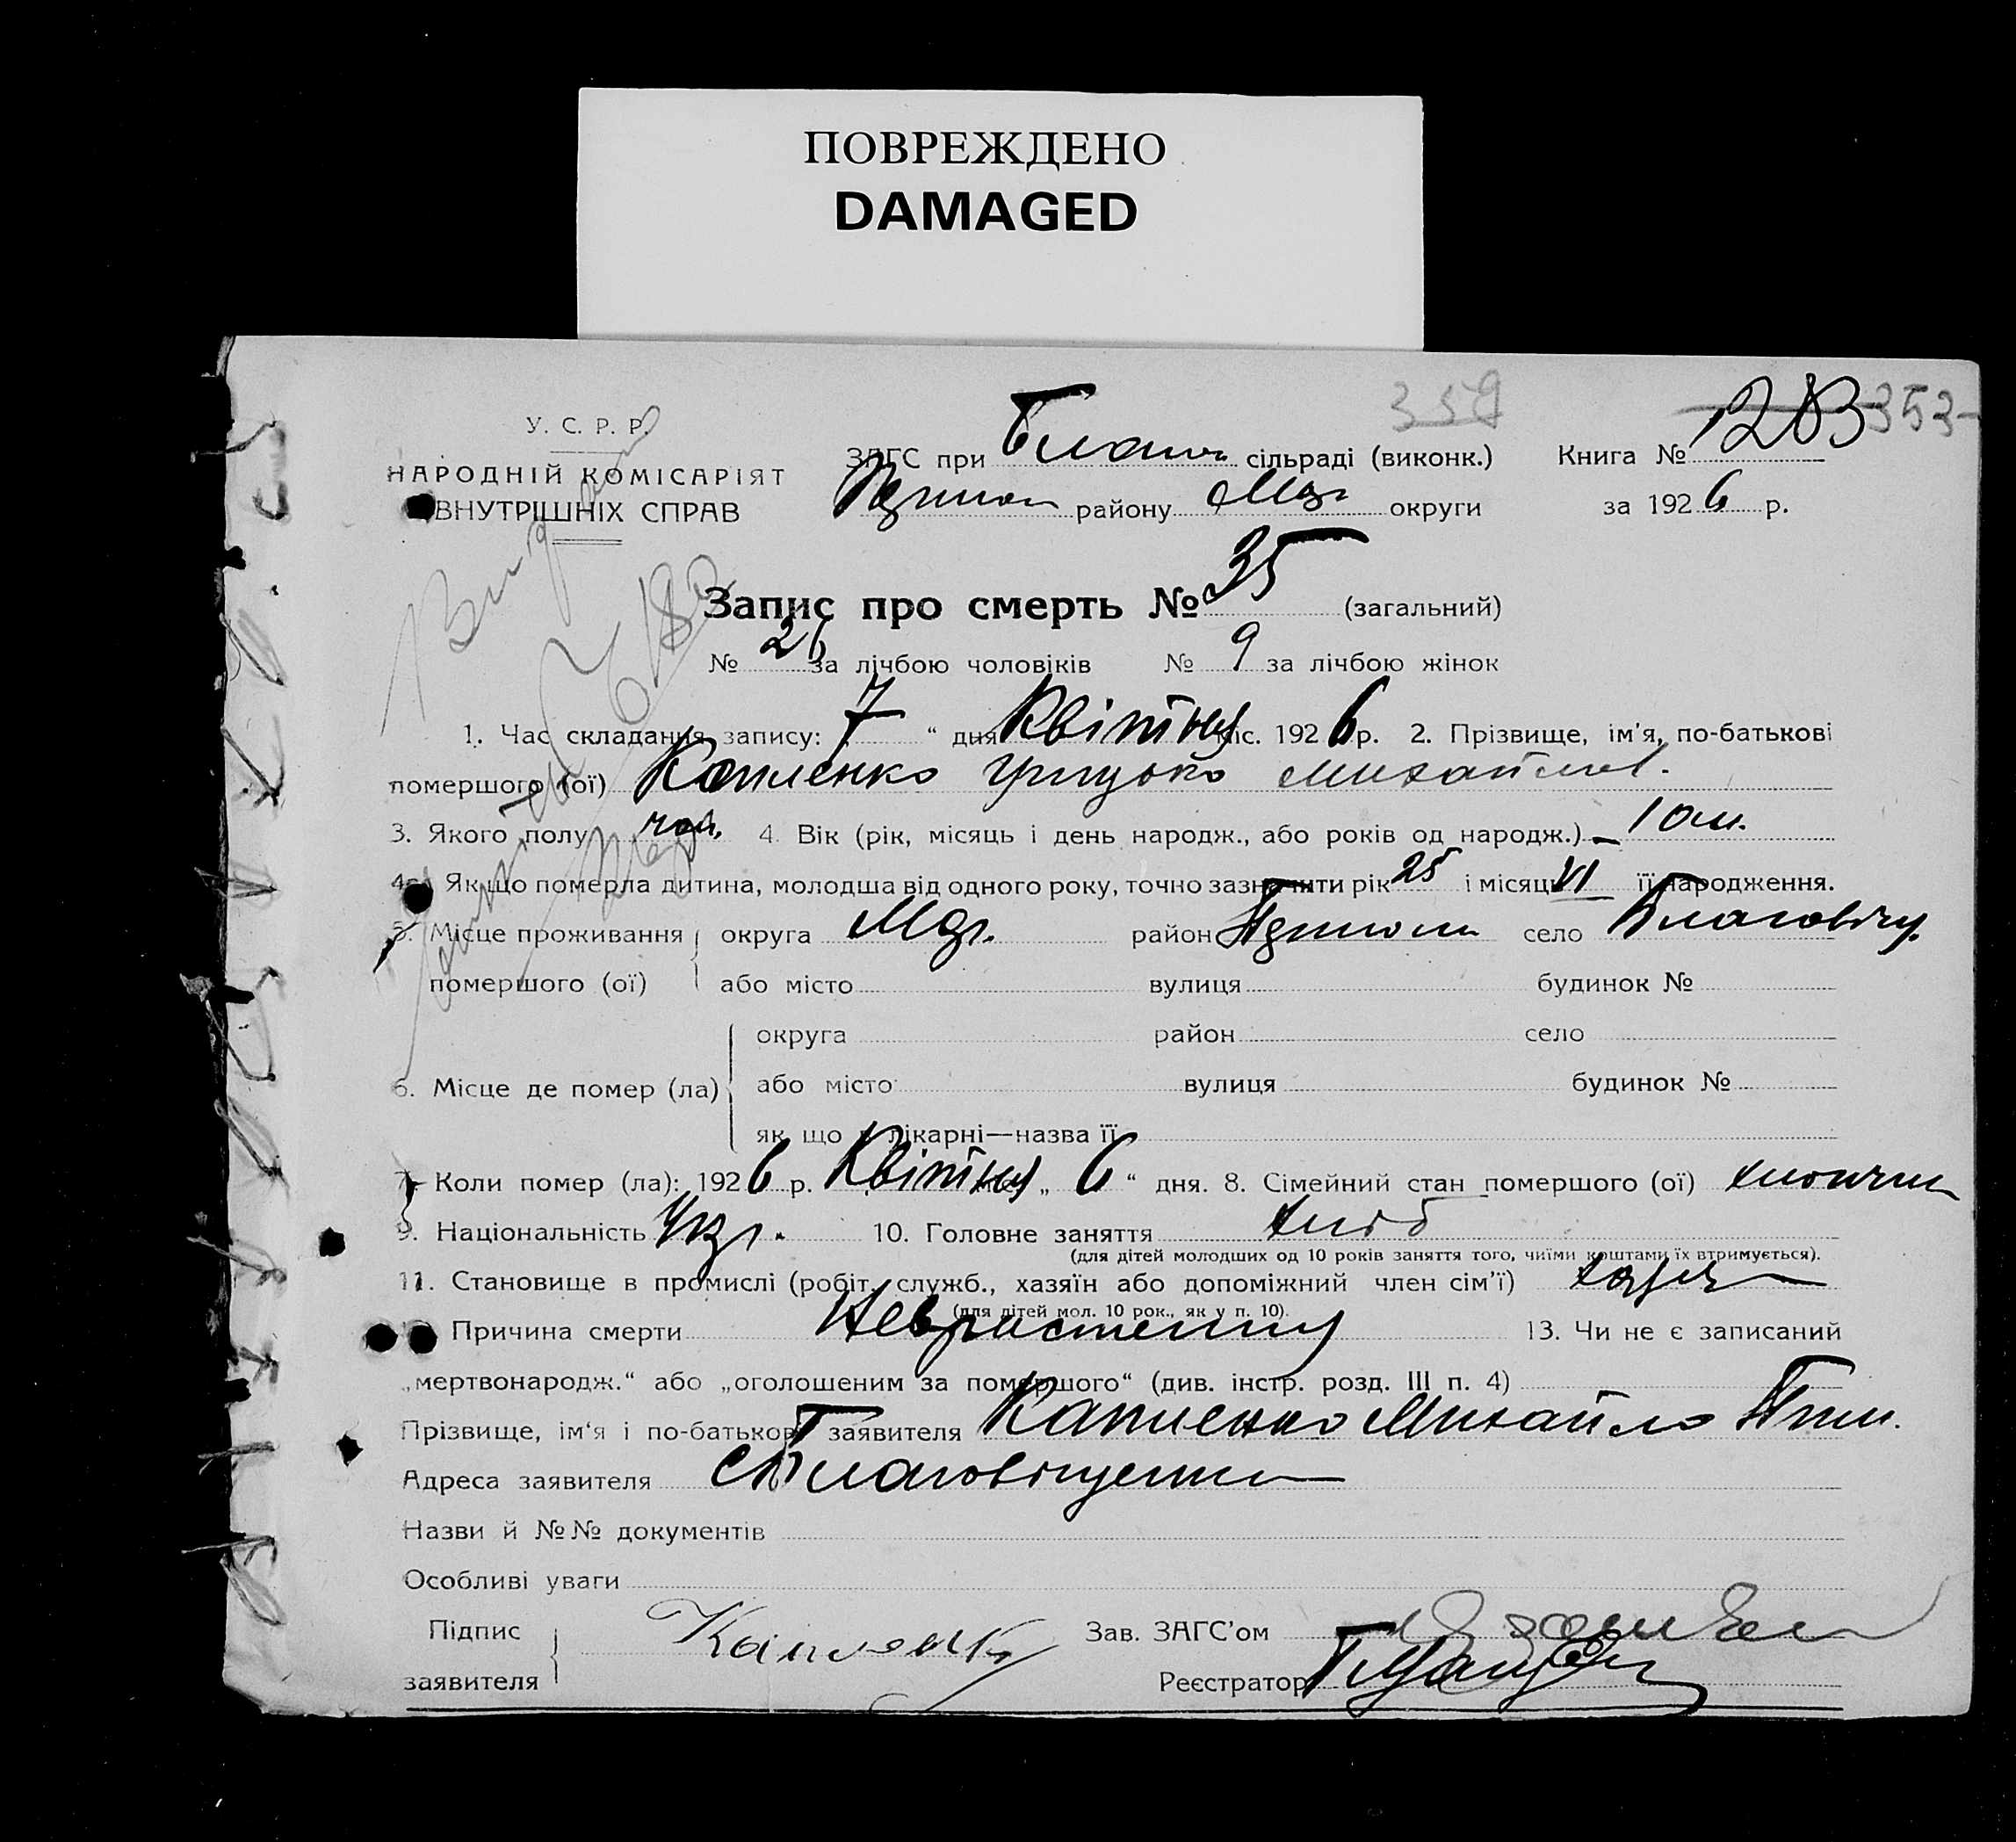 ПОВРЕЖДЕНО
DAMAGED
359
У. С. Р. Р.
НАРОДНІЙ КОМІСАРІЯТ
ВНУТРІШНІХ СПРАВ
ЗАГС при сільраді (виконк.) Книга № 1283 353
району округи за 1926 р.
Запис про смерть № 35 (загальний)
№ 26 за лічбою чоловіків № 9 за лічбою жінок
1. Час складання запису: 7 " дня Квітня міс. 1926 р. 2. Прізвище, ім'я, по-батькові
помершого (ої) Капленко Грицько Михайлов.
3. Якого полу чол. 4. Вік (рік, місяць і день народж., або років од народж.) – 10 м.
4а) Як що померла дитина, молодша від одного року, точно зазначити рік 25 і місяць VI її народження.
5. Місце проживання округа район село Благовіщ.
помершого (ої) або місто вулиця будинок №
округа район село
6. Місце де помер (ла) або місто вулиця будинок №
як що в лікарні—назва її
7. Коли помер (ла): 1926 р. Квітня „ 6 " дня. 8. Сімейний стан помершого (ої) хлопчик
9. Національність Укр. 10. Головне заняття хліб
(для дітей молодших од 10 років заняття того, чиїми коштами їх втримується).
11. Становище в промислі (робіт. служб., хазяїн або допоміжний член сім'ї) хазяїн
(для дітей мол. 10 рок., як у п. 10).
Причина смерти 13. Чи не є записаний
„мертвонародж." або „оголошеним за помершого" (див. інстр. розд. III п. 4)
Прізвище, ім'я і по-батькові заявителя Капленко Михайло
Адреса заявителя с. Благовіщенка
Назви й №№ документів
Особливі уваги
Підпис Капленко Зав. ЗАГС'ом
заявителя Реєстратор